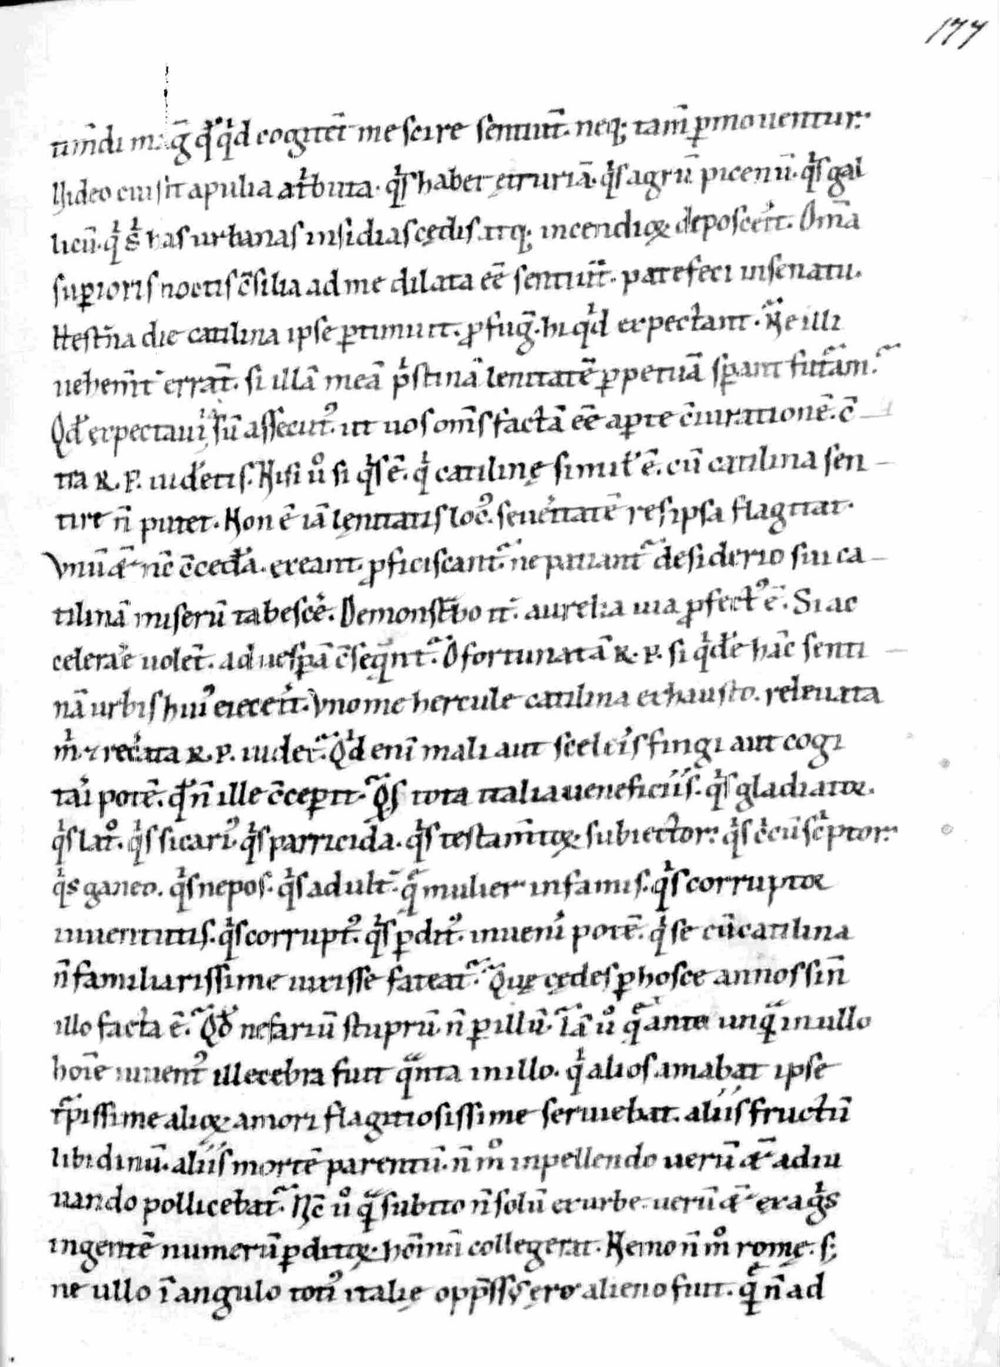 177
tim̄di m. ḡ qͥqͥd cogitēt me scire sentiūt. neq; tam̄ ꝑmouentur.
Video cui sit apulia atͥbuta. qͥs habet ętruriā. qͥs agrū picenū. qͥs gal
licū. qͥs has urbanas insidias cędis. atq; incendioꝝ depoposcerͥt. Om̄a
suꝑioris noctis c̄silia ad me dilata eē sentiūt. patefeci in senatu.
Hest̄na die catilina ipse ꝑtimuit. ꝓfuḡ. hi qͥd expectant. Ne illi
uehem̄t errāt. si illā meā pͥstinā lenitatē ꝑpetuā sꝑant futām.
Qd̄ expectaui sū assecutꝰ. ut uos om̄s factā eē aꝑte c̄iurationē. c̄
tra R. P. uidetis. Nisi uͦ si qͥs ē. qͥ catilinę similˀ ē. cū catilina sen
tire n̄ putet. Non ē iā lęnitatis locꝰ. seueͥtatē res ipsa flagitat.
Vnū &ā nc̄ c̄ceda. exeant. ꝓficiscant. ne patiant desiderio sui ca
tilinā miserū tabescere. Demonstbo it. aurelia uia ꝓfectꝰ ē. Si ac
celerare uolet. ad uesꝑā c̄seqnt. O fortunatā R. P. si qͥdē hāc senti
nā urbis huiꝰ eiecerͥt. Vno me hercule catilina exhausto. releuata
mͥ. & recreata R. P. uidet. Qͥd enī mali aut sceleris fingi aut cogi
tari potē. qd̄ n̄ ille c̄ceꝑit. Qͥs tota italia ueneficiis. qͥs gladiatoꝝ.
qͥs latͦ. qͥs sicariꝰ. qͥs parricida. qͥs testam̄toꝝ subiector. qͥs cͥcūscͥptor.
qͥs ganeo. qͥs nepos. qͥs adult. qͣ mulier infamis. qͥs corruptoꝛ
iuuentutis. qͥs corruptꝰ. qͥs ꝑditꝰ. inueniͥ potē. qͥ se cū catilina
n̄ familiarissime uixisse fateat. Quę cędes ꝑ hosce annos sin̄
illo facta ē. Qd̄ nefariū stuprū. n̄ ꝑ illū. Iā uͦ qͣ tanta unqͣ in ullo
hoīe iuuentꝰ illecebra fuit qͣnta in illo. qͥ alios amabat ipse
tͥpissime alioꝝ amori flagitiosissime seruiebat. aliis fructū
libidinū. aliis mortē parentū. n̄ mͦ inpellendo uerū &ā adiu
uando pollicebat. Nc̄ uͦ qͣ subito n̄ solū ex urbe. uerū &ā ex agrͥs
ingentē numerū ꝑditoꝝ. hoīnū collegerat. Nemo n̄ mͦ romę. s;
ne ullo ī angulo totiꝰ italię opp̄ssꝰ ęre alieno fuit. qͥ n̄ ad